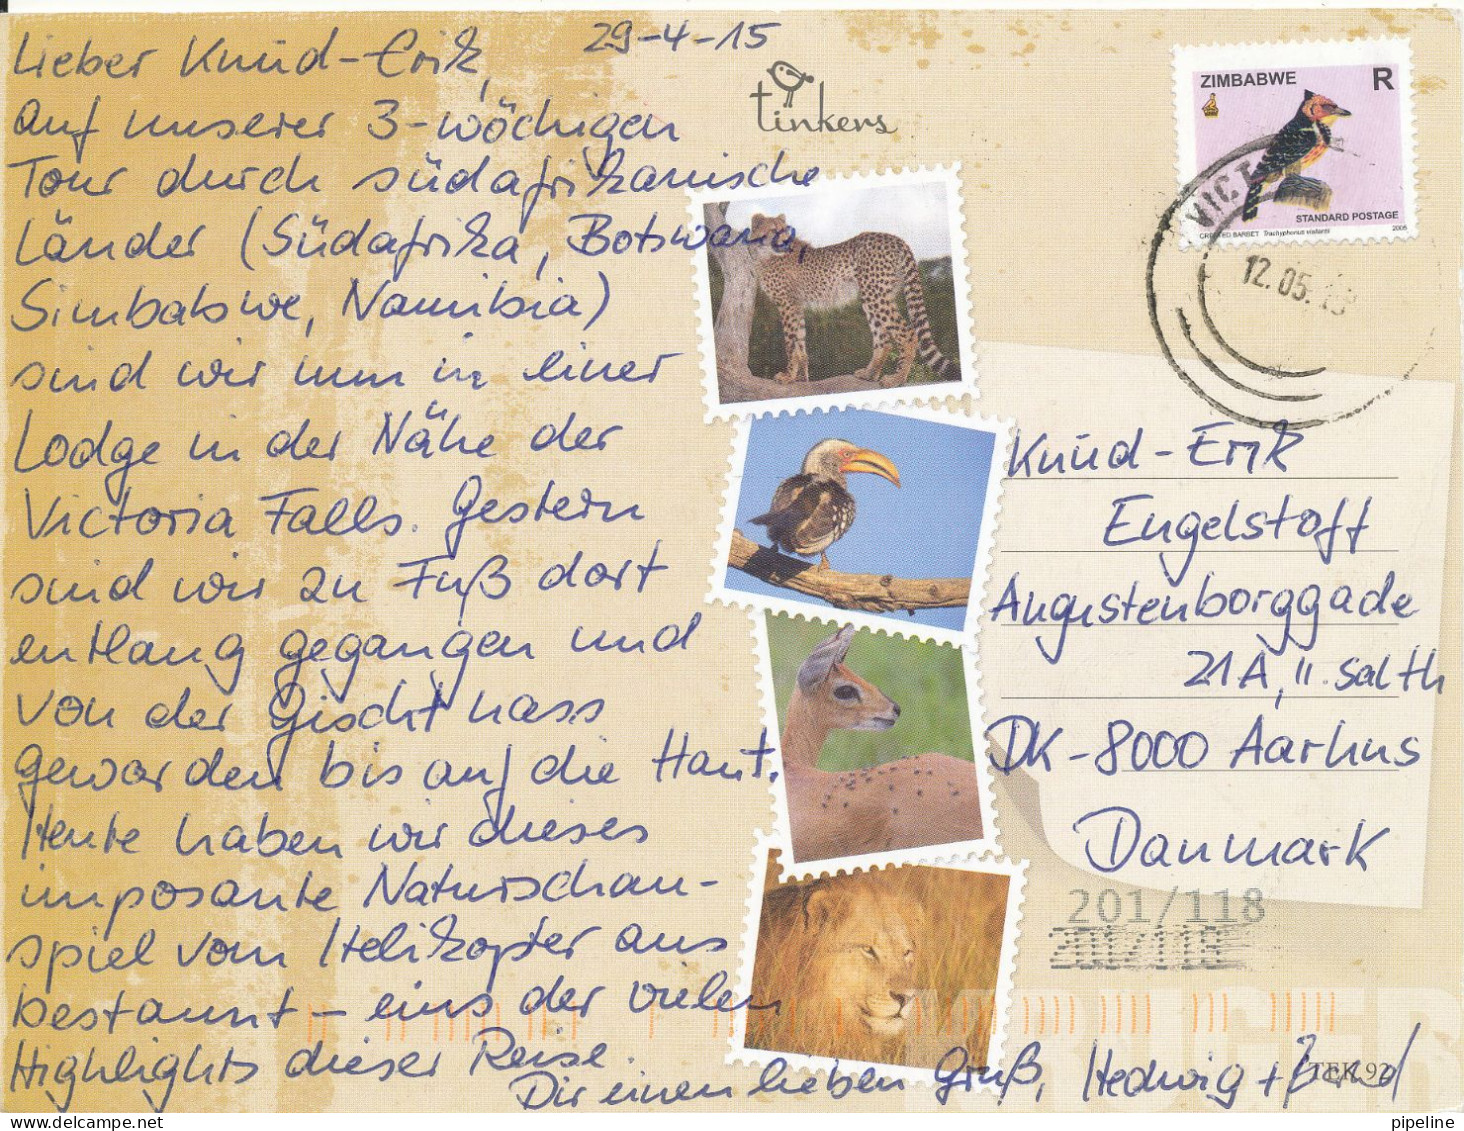 29-4-15
Lieber Knud-Erik,
auf unserer 3-wöchigen
Tour durch südafrikanische
Länder (Südafrika, Botswana,
Simbabwe, Namibia)
sind wir nun in einer
Lodge in der Nähe der
Victoria Falls. Gestern
sind wir zu Fuß dort
entlang gegangen und
von der Gischt nass
geworden bis auf die Haut.
Heute haben wir dieses
imposante Naturschau-
spiel vom Helikopter aus
bestaunt - eins der vielen
Highlights dieser Reise.
Dir einen lieben Gruß, Hedwig + Bernd
tinkers
ZIMBABWE R
STANDARD POSTAGE
CRESTED BARBET Trachyphonus vaillantii
VICT
12.05.
Knud-Erik
Engelstoft
Augustenborggade
21A, II. sal th
DK-8000 Aarhus
Danmark
201/118
KRUGER
TEK 92
pipeline